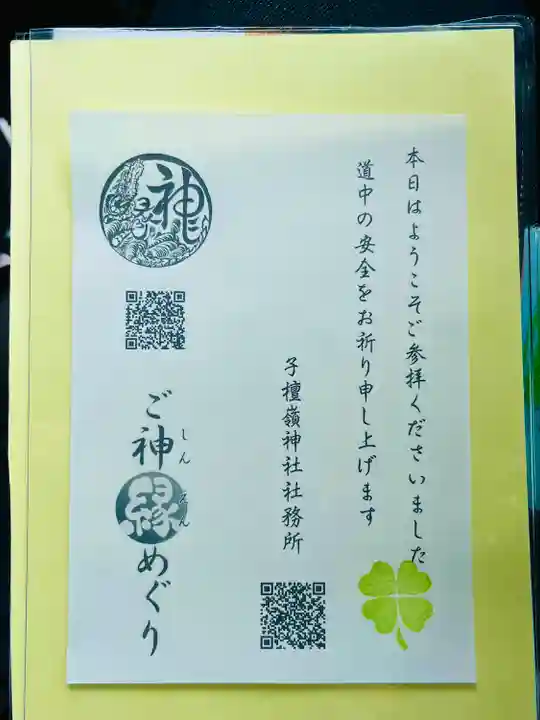 本日はようこそご参拝くださいました
道中の安全をお祈り申し上げます
子檀嶺神社社務所
神
ご神縁めぐり
しんえん